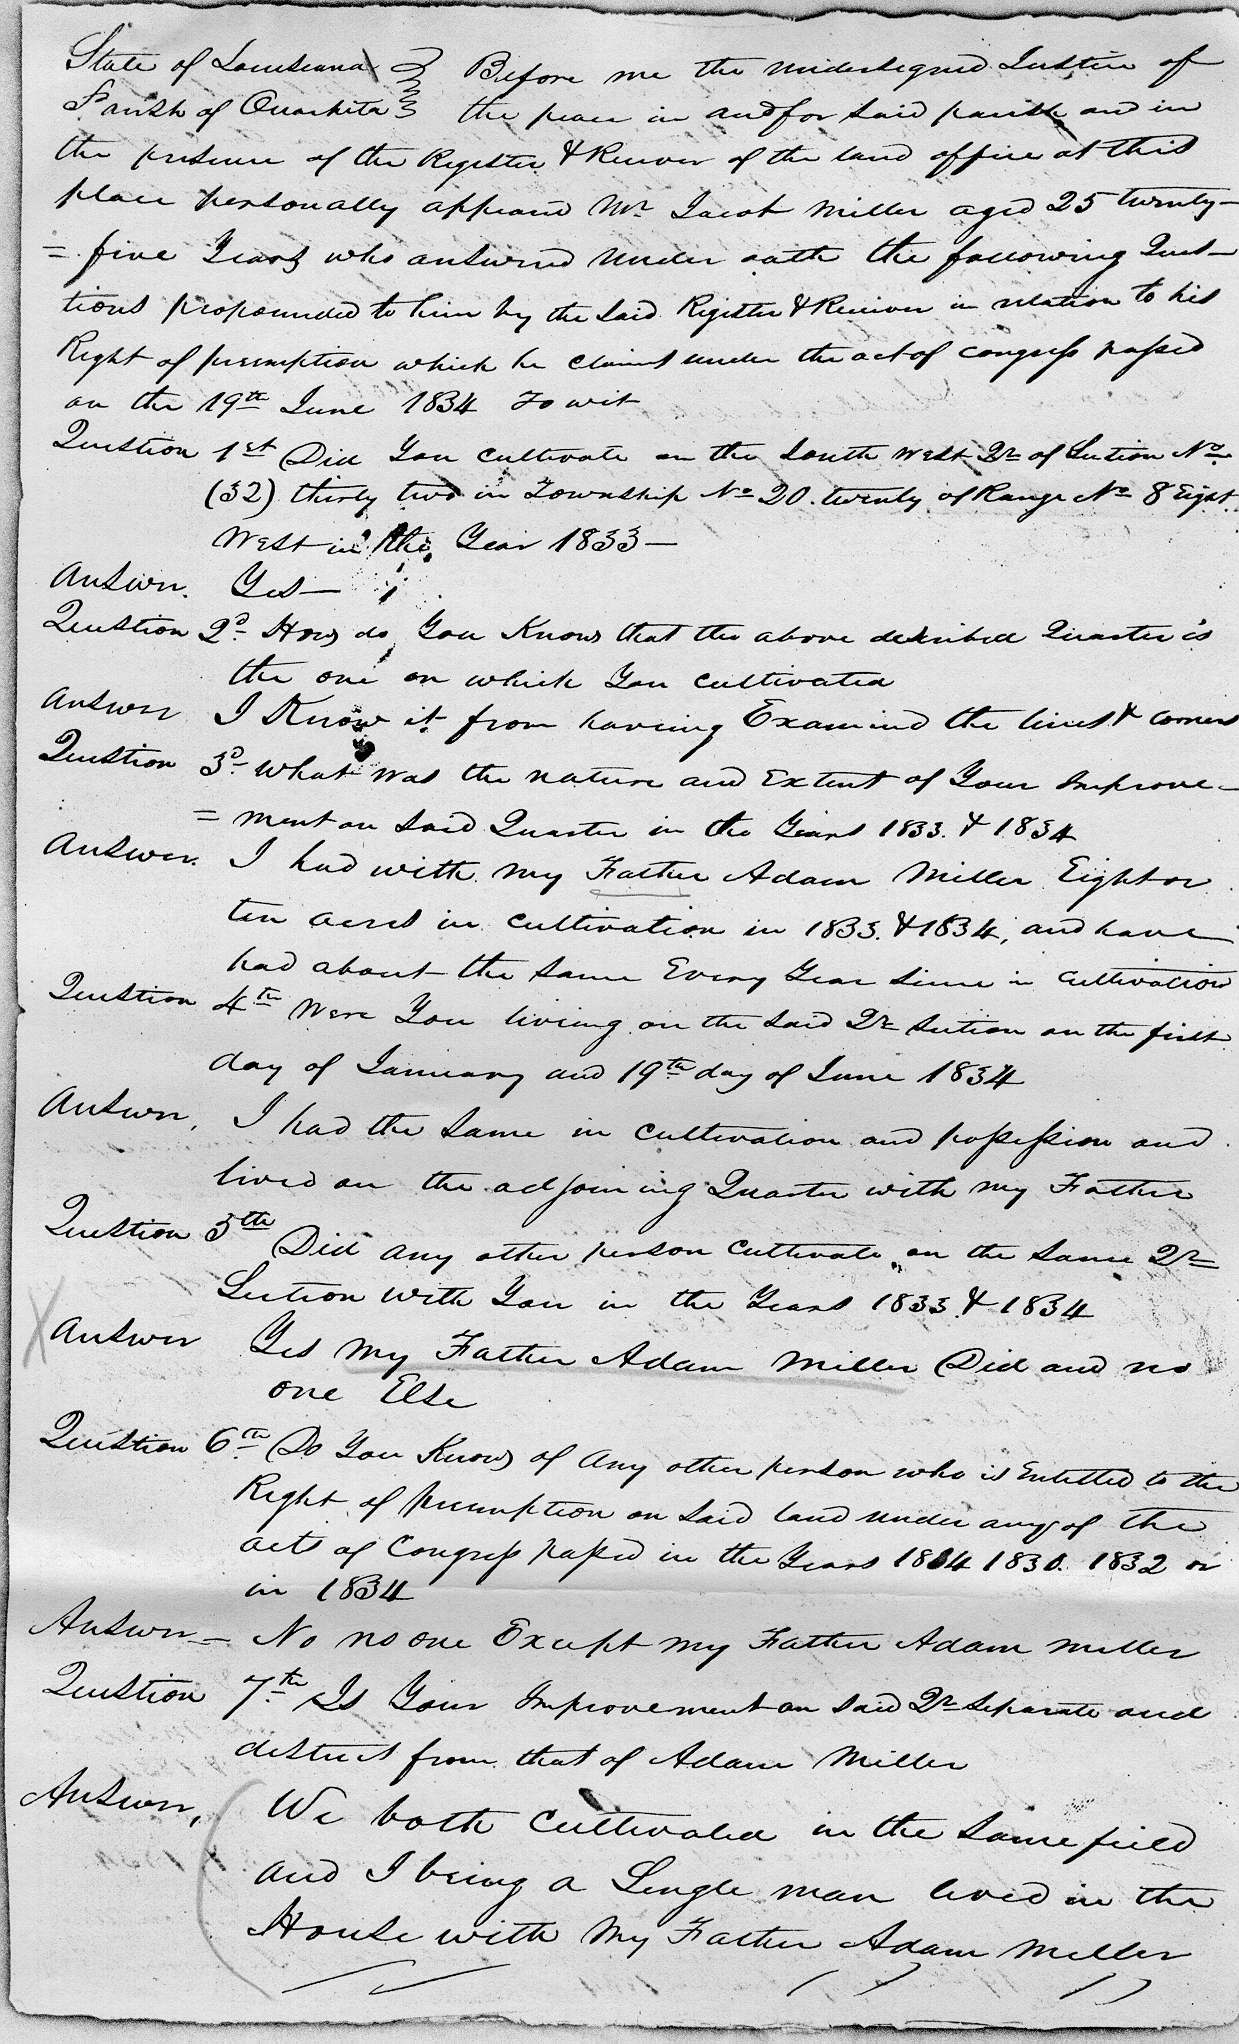 State of Louisiana } Before me the undersigned Justice of
Parish of Ouachita } the peace in and for said parish and in
the presence of the Register & Receiver of the land office at this
place personally appeard Mr. Jacob Miller aged 25 twenty-
= five Years who answered under oath the following Ques-
tions propounded to him by the said Register & Receiver in relation to his
Right of premption which he claims under the act of congress passed
on the 19th June 1834 To wit
Question 1st Did You cultivate on the South West Qr of Section No.
(32) thirty two in Township No 20. twenty of Range No 8 Eight
West in the Year 1833 —
Answer. Yes —
Question 2d. How do You Know that the above described Quarter is
the one on which You cultivated
Answer I Know it from having Examined the lines & corners
Question 3d. What was the nature and Extent of Your Improve-
= ment on said Quarter in the Years 1833. & 1834
Answer. I had with my Father Adam Miller Eight or
ten acres in cultivation in 1833. & 1834, and have
had about the same Every Year since in cultivation
Question 4th Were You living on the said Qr Section on the first
day of January and 19th day of June 1834
Answer, I had the same in cultivation and possession and
lived on the adjoining Quarter with my Father
Question 5th Did any other person cultivate on the same Qr
Section with You in the Years 1833 & 1834
X Answer Yes my Father Adam Miller Did and no
one Else
Question 6th. Do You Know of any other person who is Entitled to the
Right of premption on said land under any of the
acts of Congress passed in the Years 1814 1830. 1832 or
in 1834
Answer — No no one Except my Father Adam Miller
Question 7th. Is Your Improvement on said Qr separate and
distinct from that of Adam Miller
Answer, We both cultivated in the same field
and I being a Single man lived in the
House with my Father Adam Miller